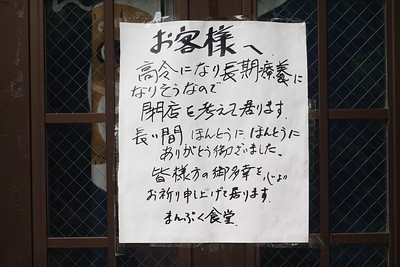 お客様へ
高令になり長期療養に
なりそうなので
閉店を考えて居ります.
長い間 ほんとうに、ほんとうに
ありがとう御ざいました、
皆様方の御多幸を心より
お祈り申し上げて居ります.
まんぷく食堂.